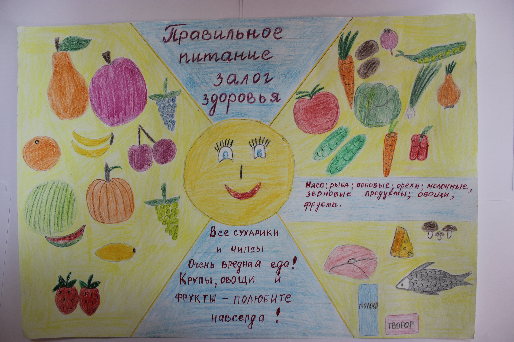 Правильное
питание
залог
здоровья
Мясо; рыба; бобовые; орехи; молочные,
зерновые продукты; овощи,
фрукты.
Все сухарики
и чипсы
Очень вредная еда!
Крупы, овощи и
фрукты – полюбите
навсегда!
молоко
творог